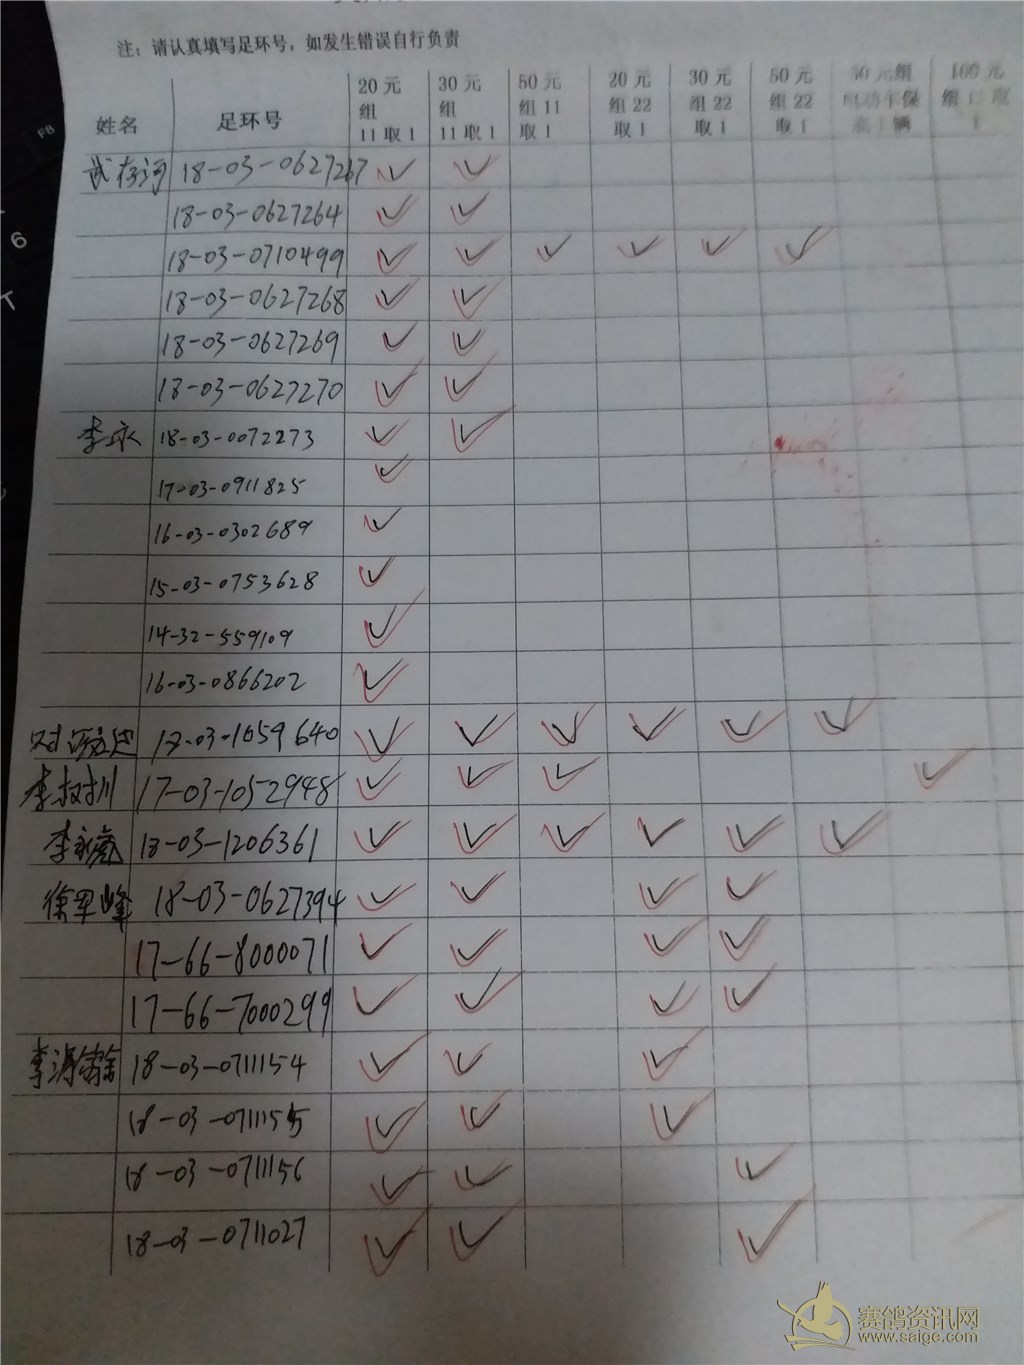 注：请认真填写足环号，如发生错误自行负责
姓名 足环号 20元组11取1 30元组11取1 50元组11取1 20元组22取1 30元组22取1 50元组22取1 50元组 100元
武存河 18-03-0627267 ✓ ✓
18-03-0627264 ✓ ✓
18-03-0710499 ✓ ✓ ✓ ✓ ✓ ✓
18-03-0627268 ✓ ✓
18-03-0627269 ✓ ✓
18-03-0627270 ✓ ✓
李永 18-03-0072273 ✓ ✓
17-03-0911825 ✓
16-03-0302689 ✓
15-03-0753628 ✓
14-32-559109 ✓
16-03-0866202 ✓
✓ ✓ ✓ ✓ ✓ ✓
李树川 17-03-1052948 ✓ ✓ ✓ ✓
李永 18-03-1206361 ✓ ✓ ✓ ✓ ✓ ✓
徐军峰 18-03-0627394 ✓ ✓ ✓ ✓
17-66-8000071 ✓ ✓ ✓ ✓
17-66-7000299 ✓ ✓ ✓ ✓
李 18-03-0711154 ✓ ✓ ✓
18-03-0711155 ✓ ✓ ✓
18-03-0711156 ✓ ✓ ✓
18-03-0711027 ✓ ✓ ✓
赛鸽资讯网
www.saige.com
F6
6
T